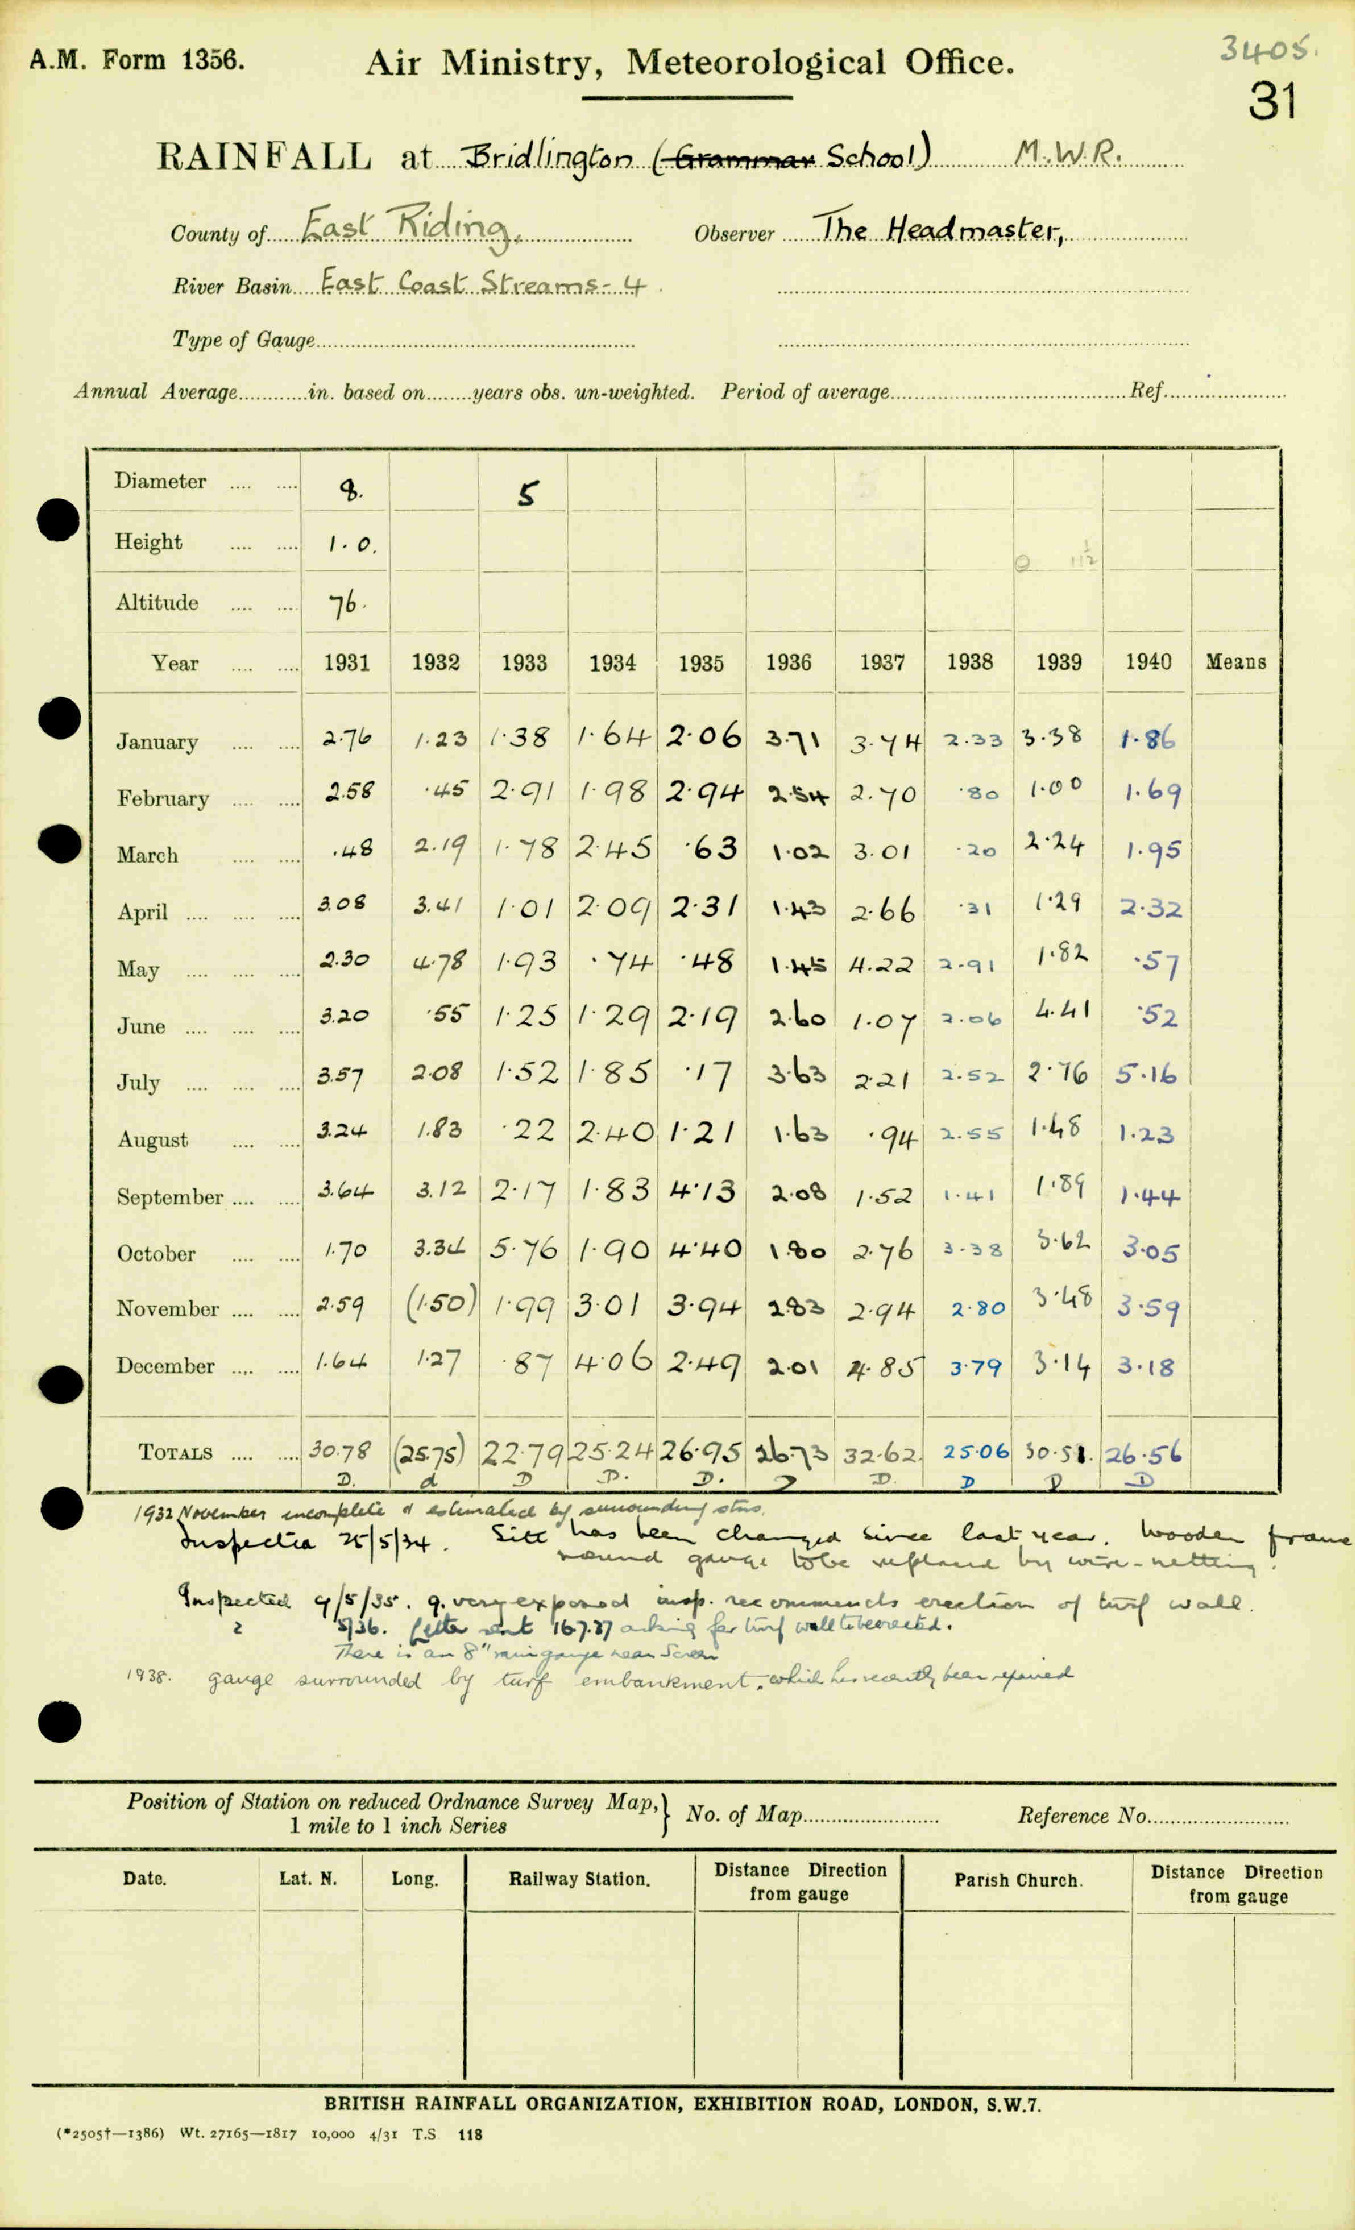 3405.
A.M. Form 1356. Air Ministry, Meteorological Office.
31
RAINFALL at Bridlington (Grammar School) M.W.R.
County of East Riding. Observer The Headmaster,
River Basin East Coast Streams - 4.
Type of Gauge
Annual Average in. based on years obs. un-weighted. Period of average Ref.
Diameter 8. 5
Height 1·0. 11½
Altitude 76.
Year 1931 1932 1933 1934 1935 1936 1937 1938 1939 1940 Means
January 2·76 1·23 1·38 1·64 2·06 3·71 3·74 2·33 3·38 1·86
February 2·58 ·45 2·91 1·98 2·94 2·54 2·70 ·80 1·00 1·69
March ·48 2·19 1·78 2·45 ·63 1·02 3·01 ·20 2·24 1·95
April 3·08 3·41 1·01 2·09 2·31 1·43 2·66 ·31 1·29 2·32
May 2·30 4·78 1·93 ·74 ·48 1·45 4·22 2·91 1·82 ·57
June 3·20 ·55 1·25 1·29 2·19 2·60 1·07 2·06 4·41 ·52
July 3·57 2·08 1·52 1·85 ·17 3·63 2·21 2·52 2·76 5·16
August 3·24 1·83 ·22 2·40 1·21 1·63 ·94 2·55 1·48 1·23
September 3·64 3·12 2·17 1·83 4·13 2·08 1·52 1·41 1·89 1·44
October 1·70 3·34 5·76 1·90 4·40 1·80 2·76 3·38 3·62 3·05
November 2·59 (1·50) 1·99 3·01 3·94 2·83 2·94 2·80 3·48 3·59
December 1·64 1·27 ·87 4·06 2·49 2·01 4·85 3·79 3·14 3·18
TOTALS 30·78 (25·75) 22·79 25·24 26·95 26·73 32·62. 25·06 30·51. 26·56
D. d D D. D. D D. D D D
1932 November incomplete & estimated by surrounding stns.
Inspection 25/5/34. Site has been changed since last year. Wooden frame
round gauge to be replaced by wire-netting.
Inspected 9/5/35. g. very exposed insp. recommends erection of turf wall.
5/36. Letter sent 16.7.37 asking for turf wall to be erected.
There is an 8" raingauge near Screen
1938. gauge surrounded by turf embankment, which has recently been repaired
Position of Station on reduced Ordnance Survey Map, } No. of Map Reference No.
1 mile to 1 inch Series
Date. Lat. N. Long. Railway Station. Distance Direction from gauge Parish Church. Distance Direction from gauge
BRITISH RAINFALL ORGANIZATION, EXHIBITION ROAD, LONDON, S.W.7.
(*2505†—1386) Wt. 27165—1817 10,000 4/31 T.S 118